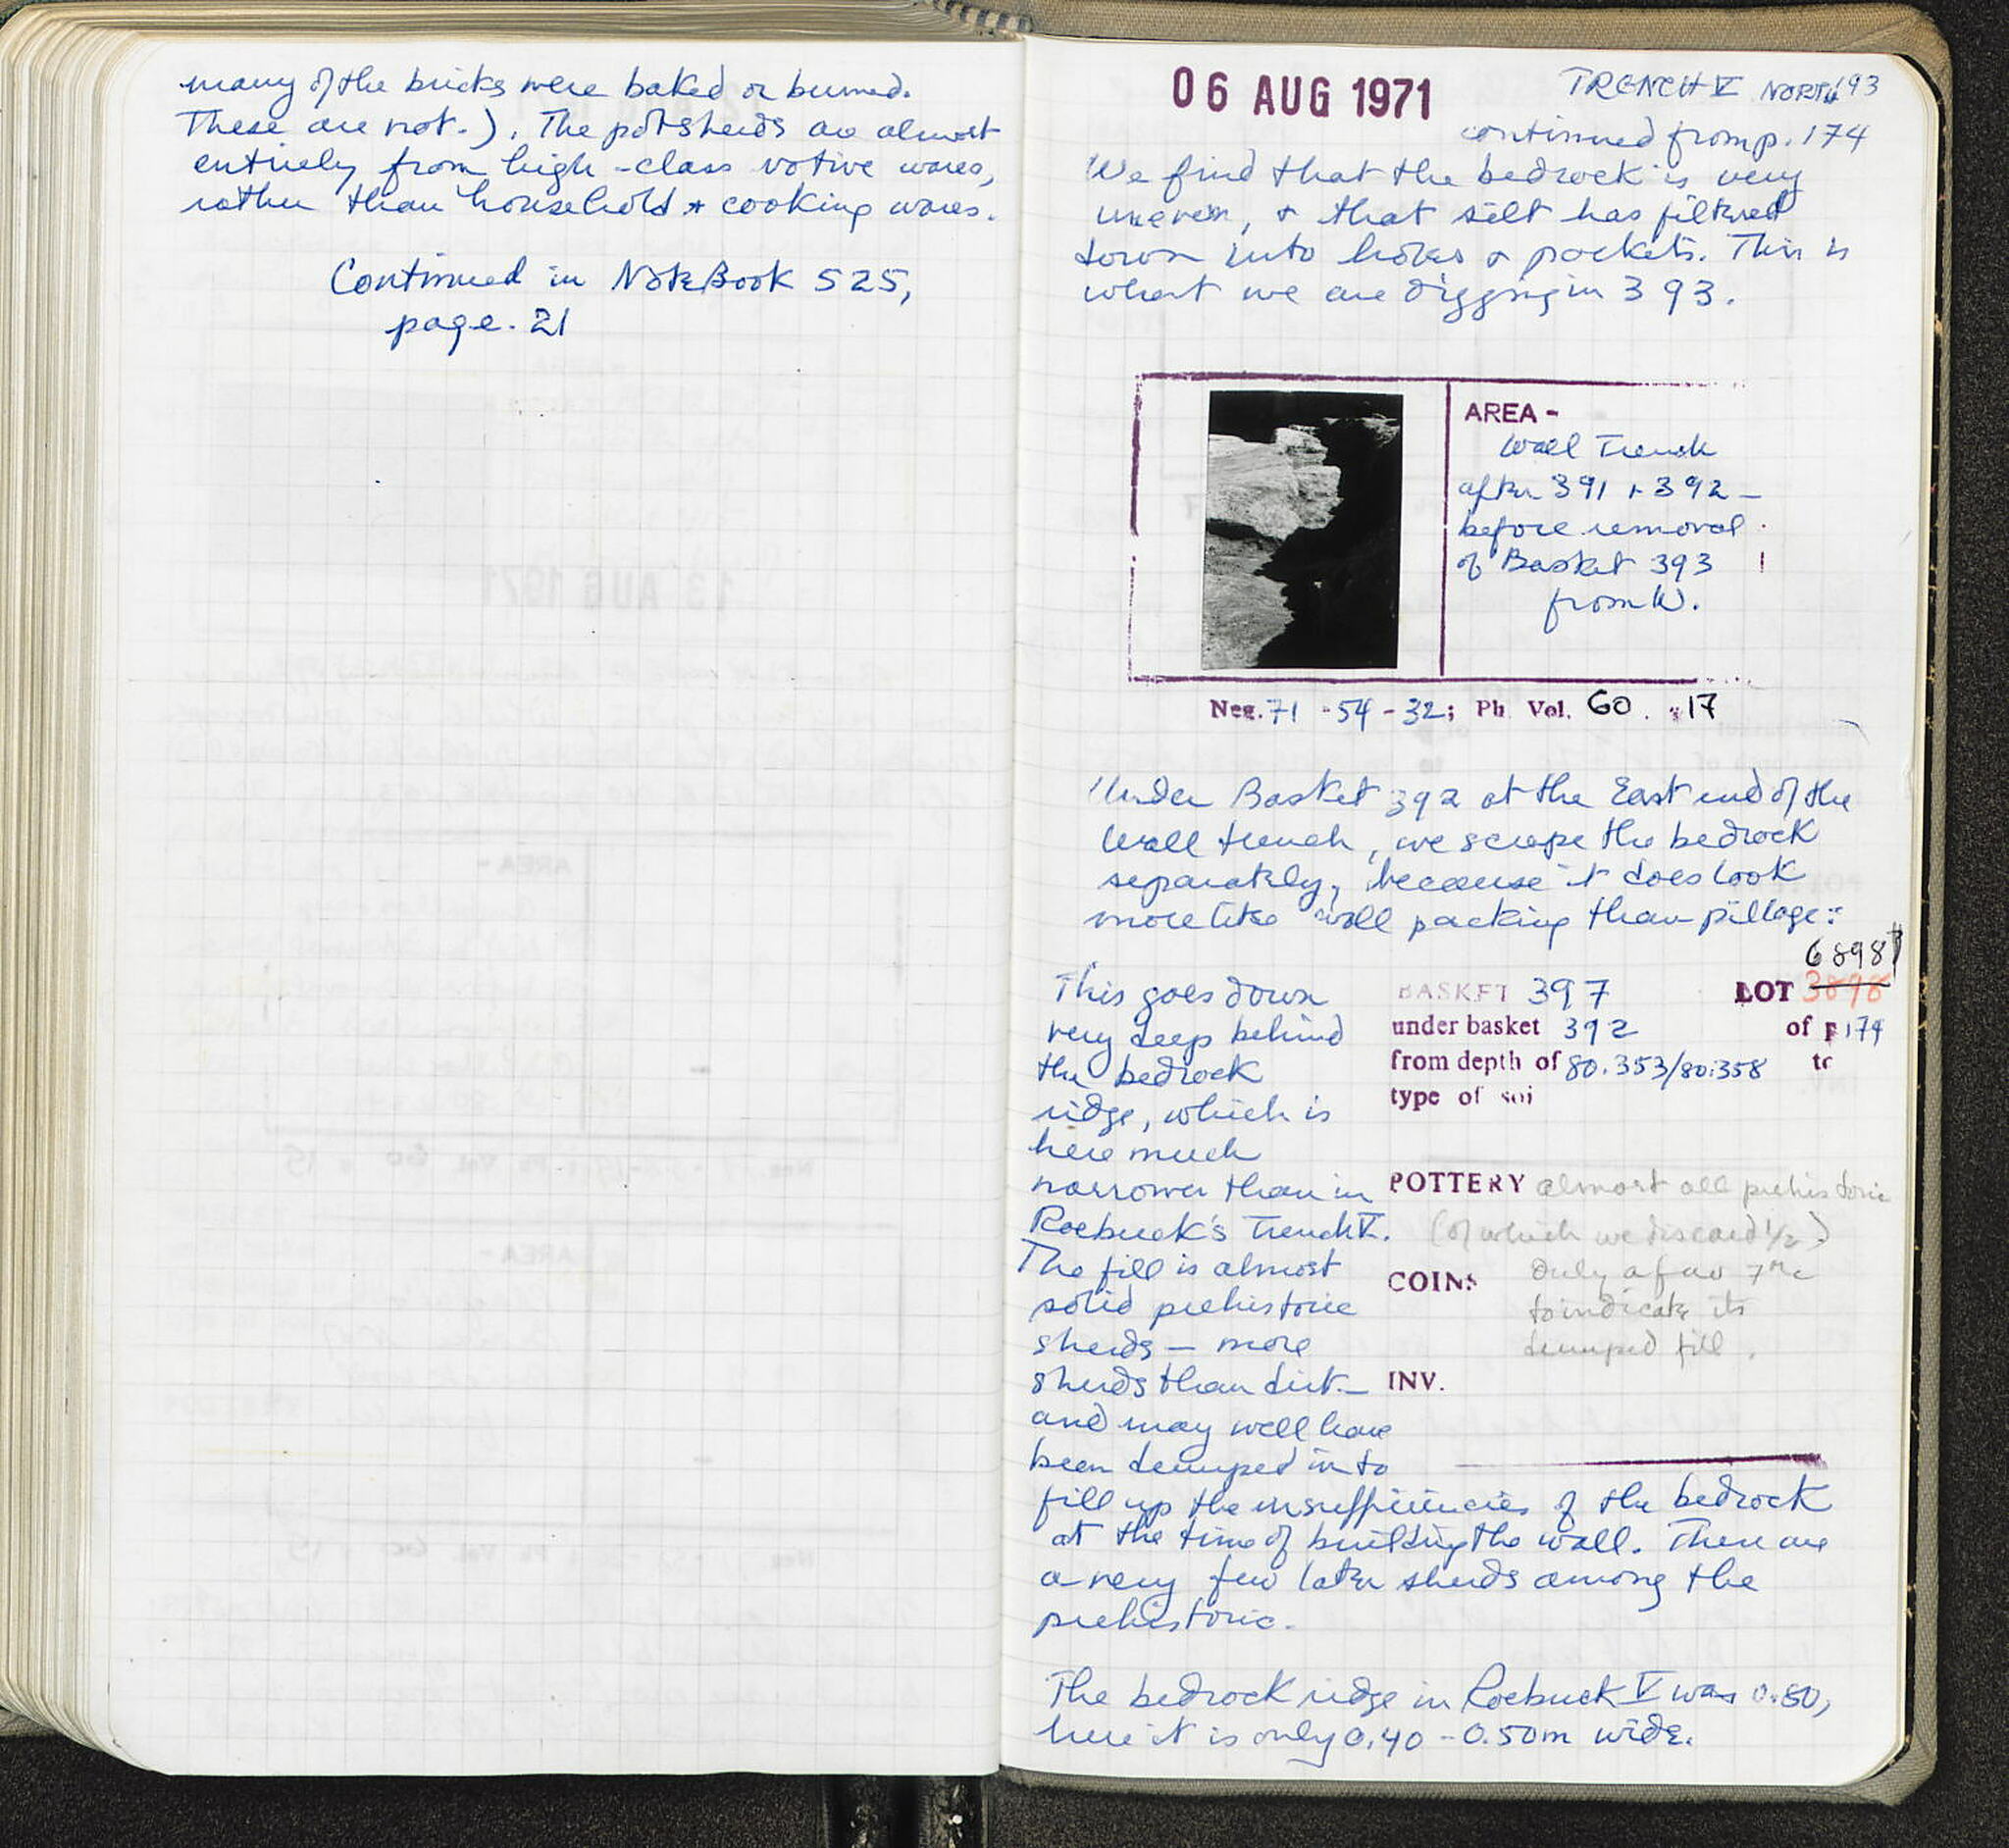 many of the bricks were baked or burned.
These are not.). The potsherds are almost
entirely from high-class votive wares,
rather than household + cooking wares.
Continued in NoteBook 525,
page. 21
06 AUG 1971
TRENCH V NORTH 193
continued from p. 174
We find that the bedrock is very
uneven, + that silt has filtered
down into holes + pockets. This is
what we are digging in 393.
AREA -
Wall Trench
after 391 + 392 -
before removal
of Basket 393
from W.
Neg. 71 - 54 - 32; Ph Vol. 60. 17
Under Basket 392 at the East end of the
Wall trench, we scrape the bedrock
separately, because it does look
more like wall packing than pillage:
6898
BASKET 397 LOT 3898
under basket 392 of p 174
from depth of 80.353/80.358 to
type of soi
This goes down
very deep behind
the bedrock
ridge, which is
here much
narrower than in
Roebuck's Trench V.
The fill is almost
solid prehistoric
sherds — more
sherds than dirt —
and may well have
been dumped in to
POTTERY almost all prehistoric
(of which we discard 1/2)
Only a few 7th c
to indicate its
dumped fill.
COINS
INV.
fill up the insufficiencies of the bedrock
at the time of building the wall. There are
a very few later sherds among the
prehistoric.
The bedrock ridge in Roebuck V was 0.80,
here it is only 0.40 - 0.50m wide.